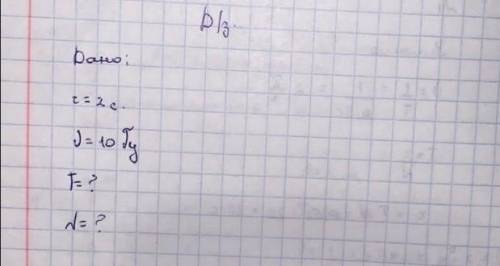 D/з.
Дано:
t = 2 с.
ν = 10 Гц
T = ?
N = ?